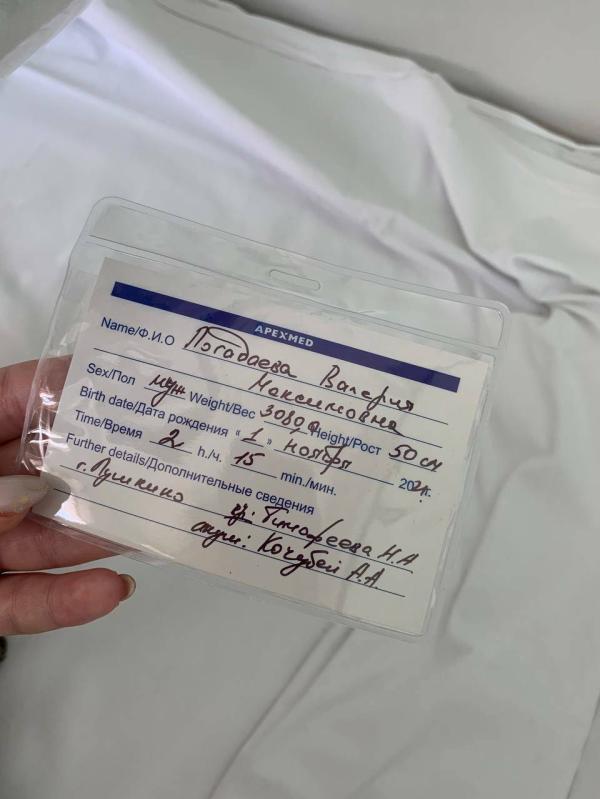 APEXMED
Name/Ф.И.О Погадаева Валерия
Максимовна
Sex/Пол муж Weight/Вес 3080 Height/Рост 50 см
Birth date/Дата рождения « 1 » ноября 202 г.
Time/Время 2 h./ч. 15 min./мин.
Further details/Дополнительные сведения
г. Пушкино вр: Тимофеева Н.А
акуш: Кочубей А.А.